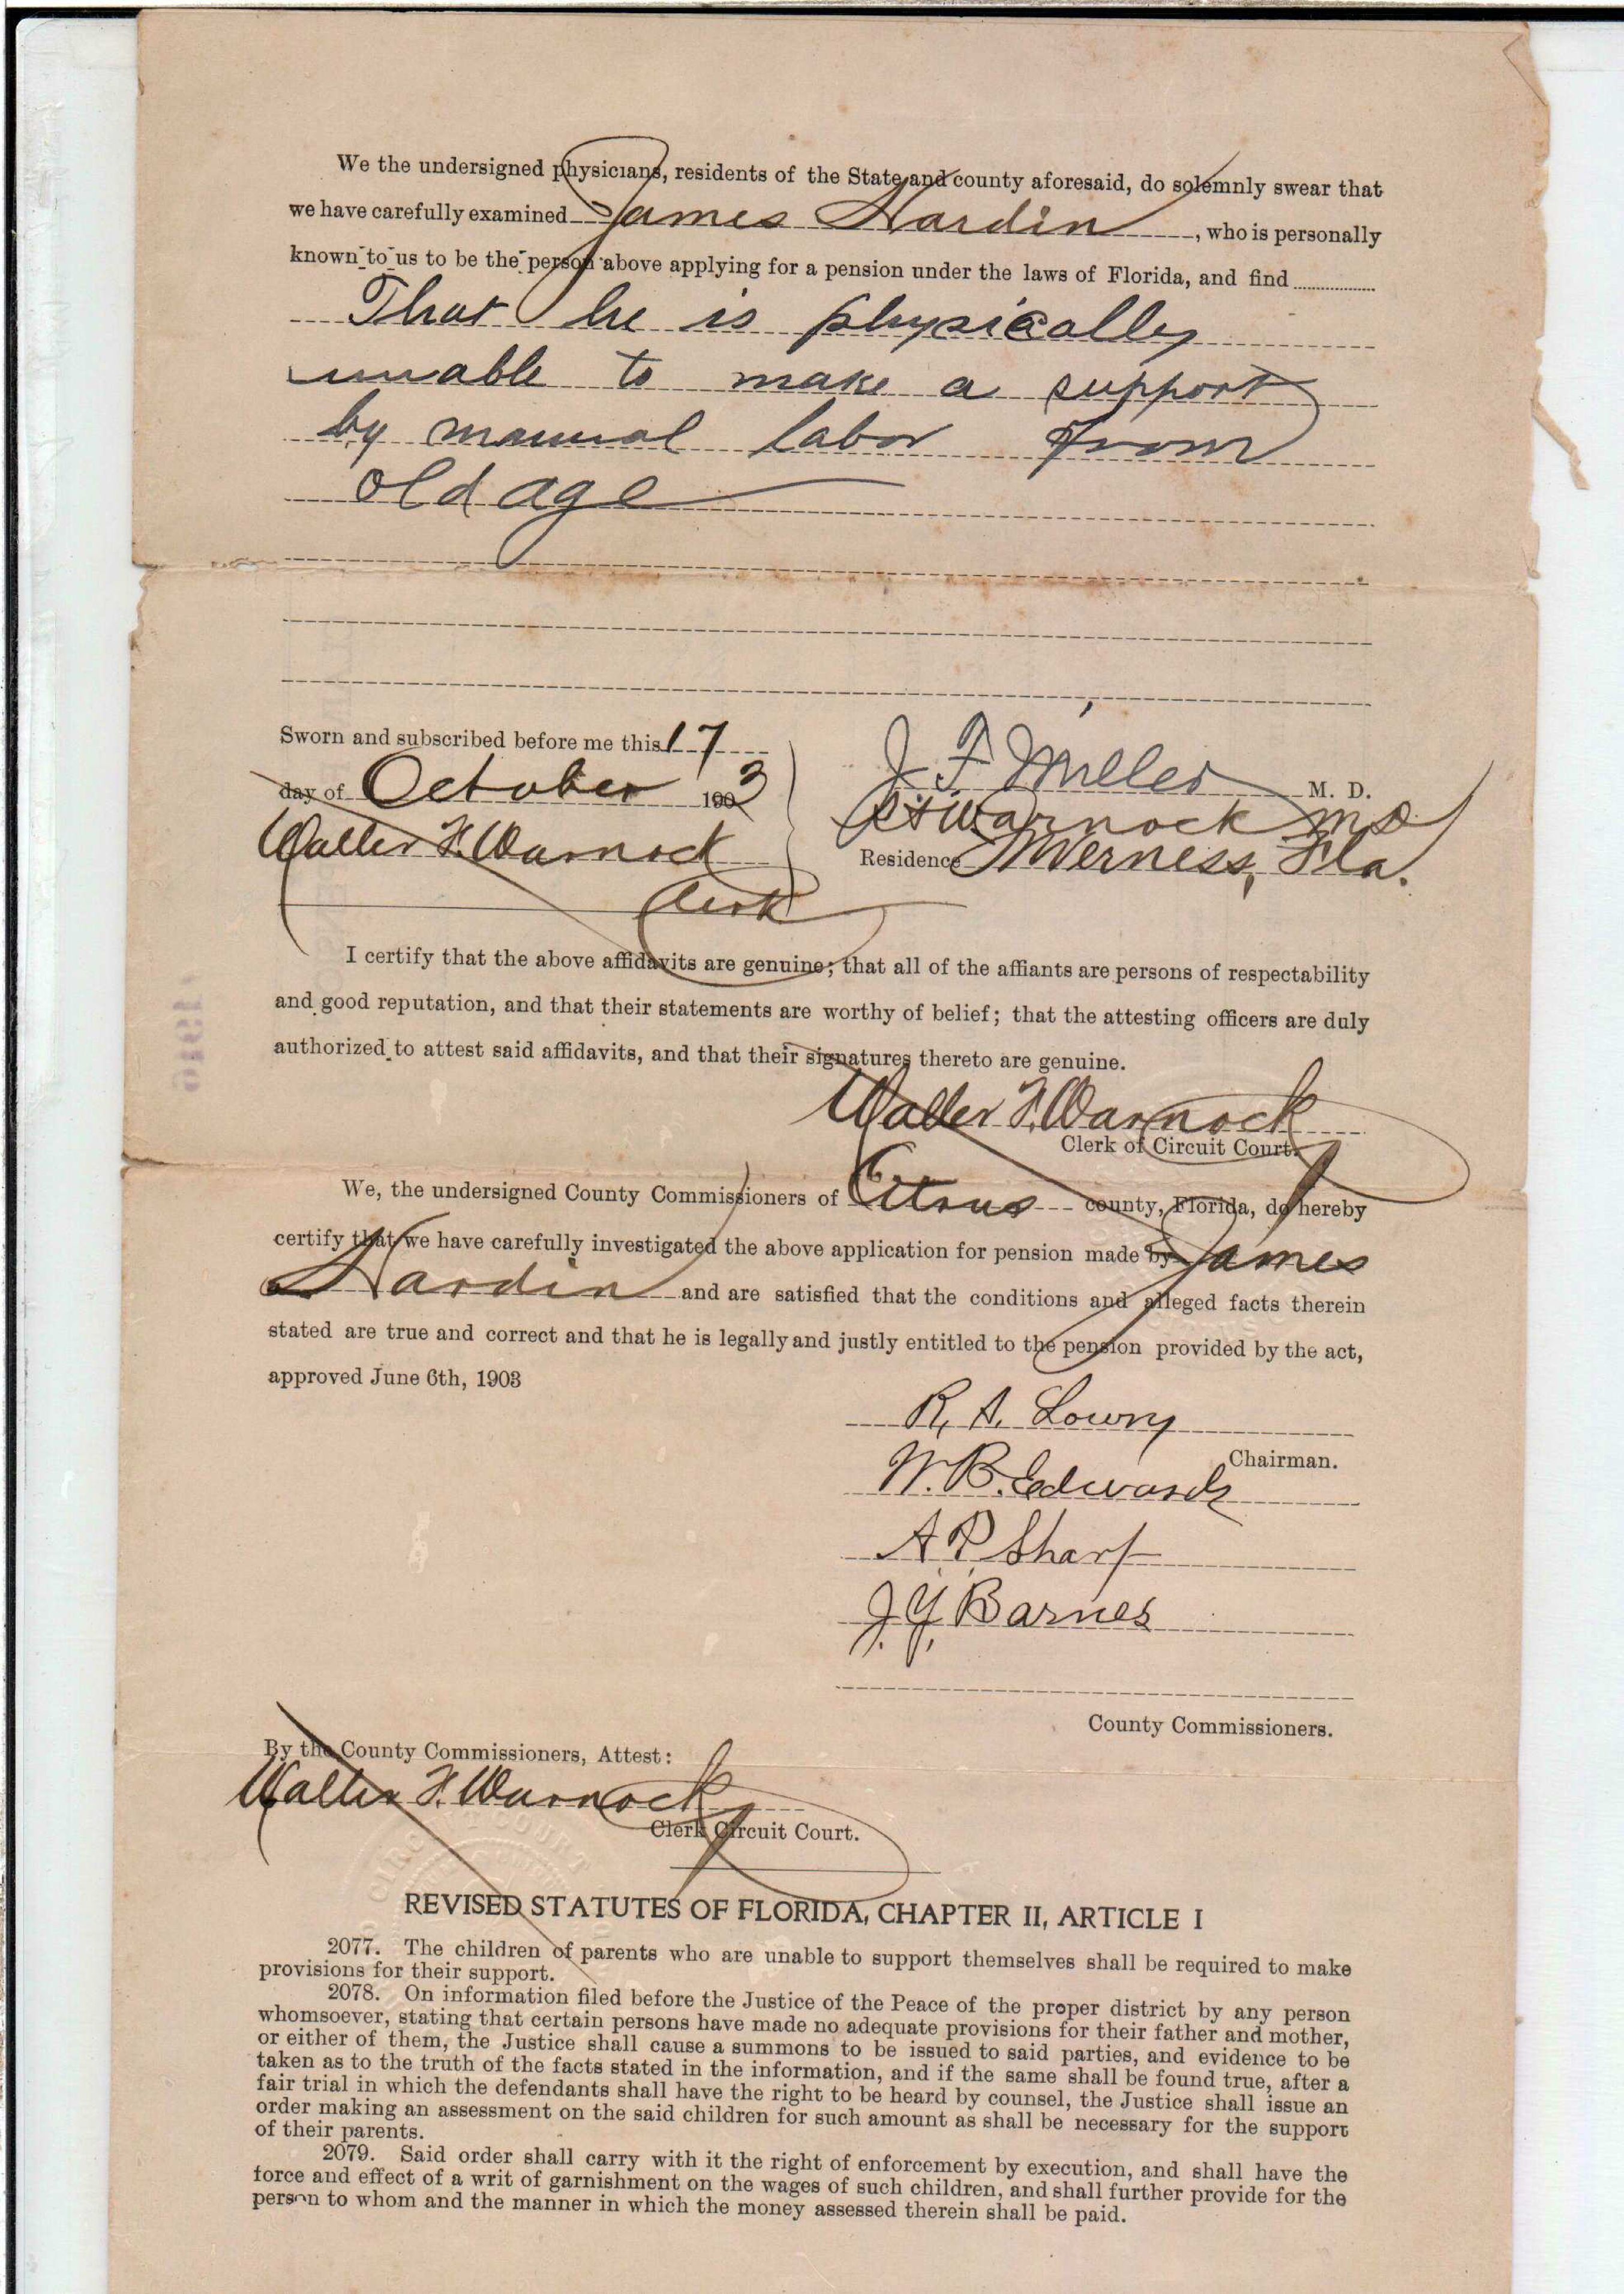 We the undersigned physicians, residents of the State and county aforesaid, do solemnly swear that
we have carefully examined James Hardin, who is personally
known to us to be the person above applying for a pension under the laws of Florida, and find
That he is physically
unable to make a support
by manual labor from
old age
Sworn and subscribed before me this 17
day of October 1903
Walter F. Warnock
Clerk
J F Miller M. D.
Warnock MD
Residence Inverness, Fla.
I certify that the above affidavits are genuine; that all of the affiants are persons of respectability
and good reputation, and that their statements are worthy of belief; that the attesting officers are duly
authorized to attest said affidavits, and that their signatures thereto are genuine.
Walter F. Warnock
Clerk of Circuit Court.
We, the undersigned County Commissioners of Citrus county, Florida, do hereby
certify that we have carefully investigated the above application for pension made by James
Hardin and are satisfied that the conditions and alleged facts therein
stated are true and correct and that he is legally and justly entitled to the pension provided by the act,
approved June 6th, 1903
R. A. Lowry
Chairman.
W. B. Edwards
A. P. Sharp
J. Y. Barnes
County Commissioners.
By the County Commissioners, Attest:
Walter F. Warnock
Clerk Circuit Court.
REVISED STATUTES OF FLORIDA, CHAPTER II, ARTICLE I
2077. The children of parents who are unable to support themselves shall be required to make
provisions for their support.
2078. On information filed before the Justice of the Peace of the proper district by any person
whomsoever, stating that certain persons have made no adequate provisions for their father and mother,
or either of them, the Justice shall cause a summons to be issued to said parties, and evidence to be
taken as to the truth of the facts stated in the information, and if the same shall be found true, after a
fair trial in which the defendants shall have the right to be heard by counsel, the Justice shall issue an
order making an assessment on the said children for such amount as shall be necessary for the support
of their parents.
2079. Said order shall carry with it the right of enforcement by execution, and shall have the
force and effect of a writ of garnishment on the wages of such children, and shall further provide for the
person to whom and the manner in which the money assessed therein shall be paid.